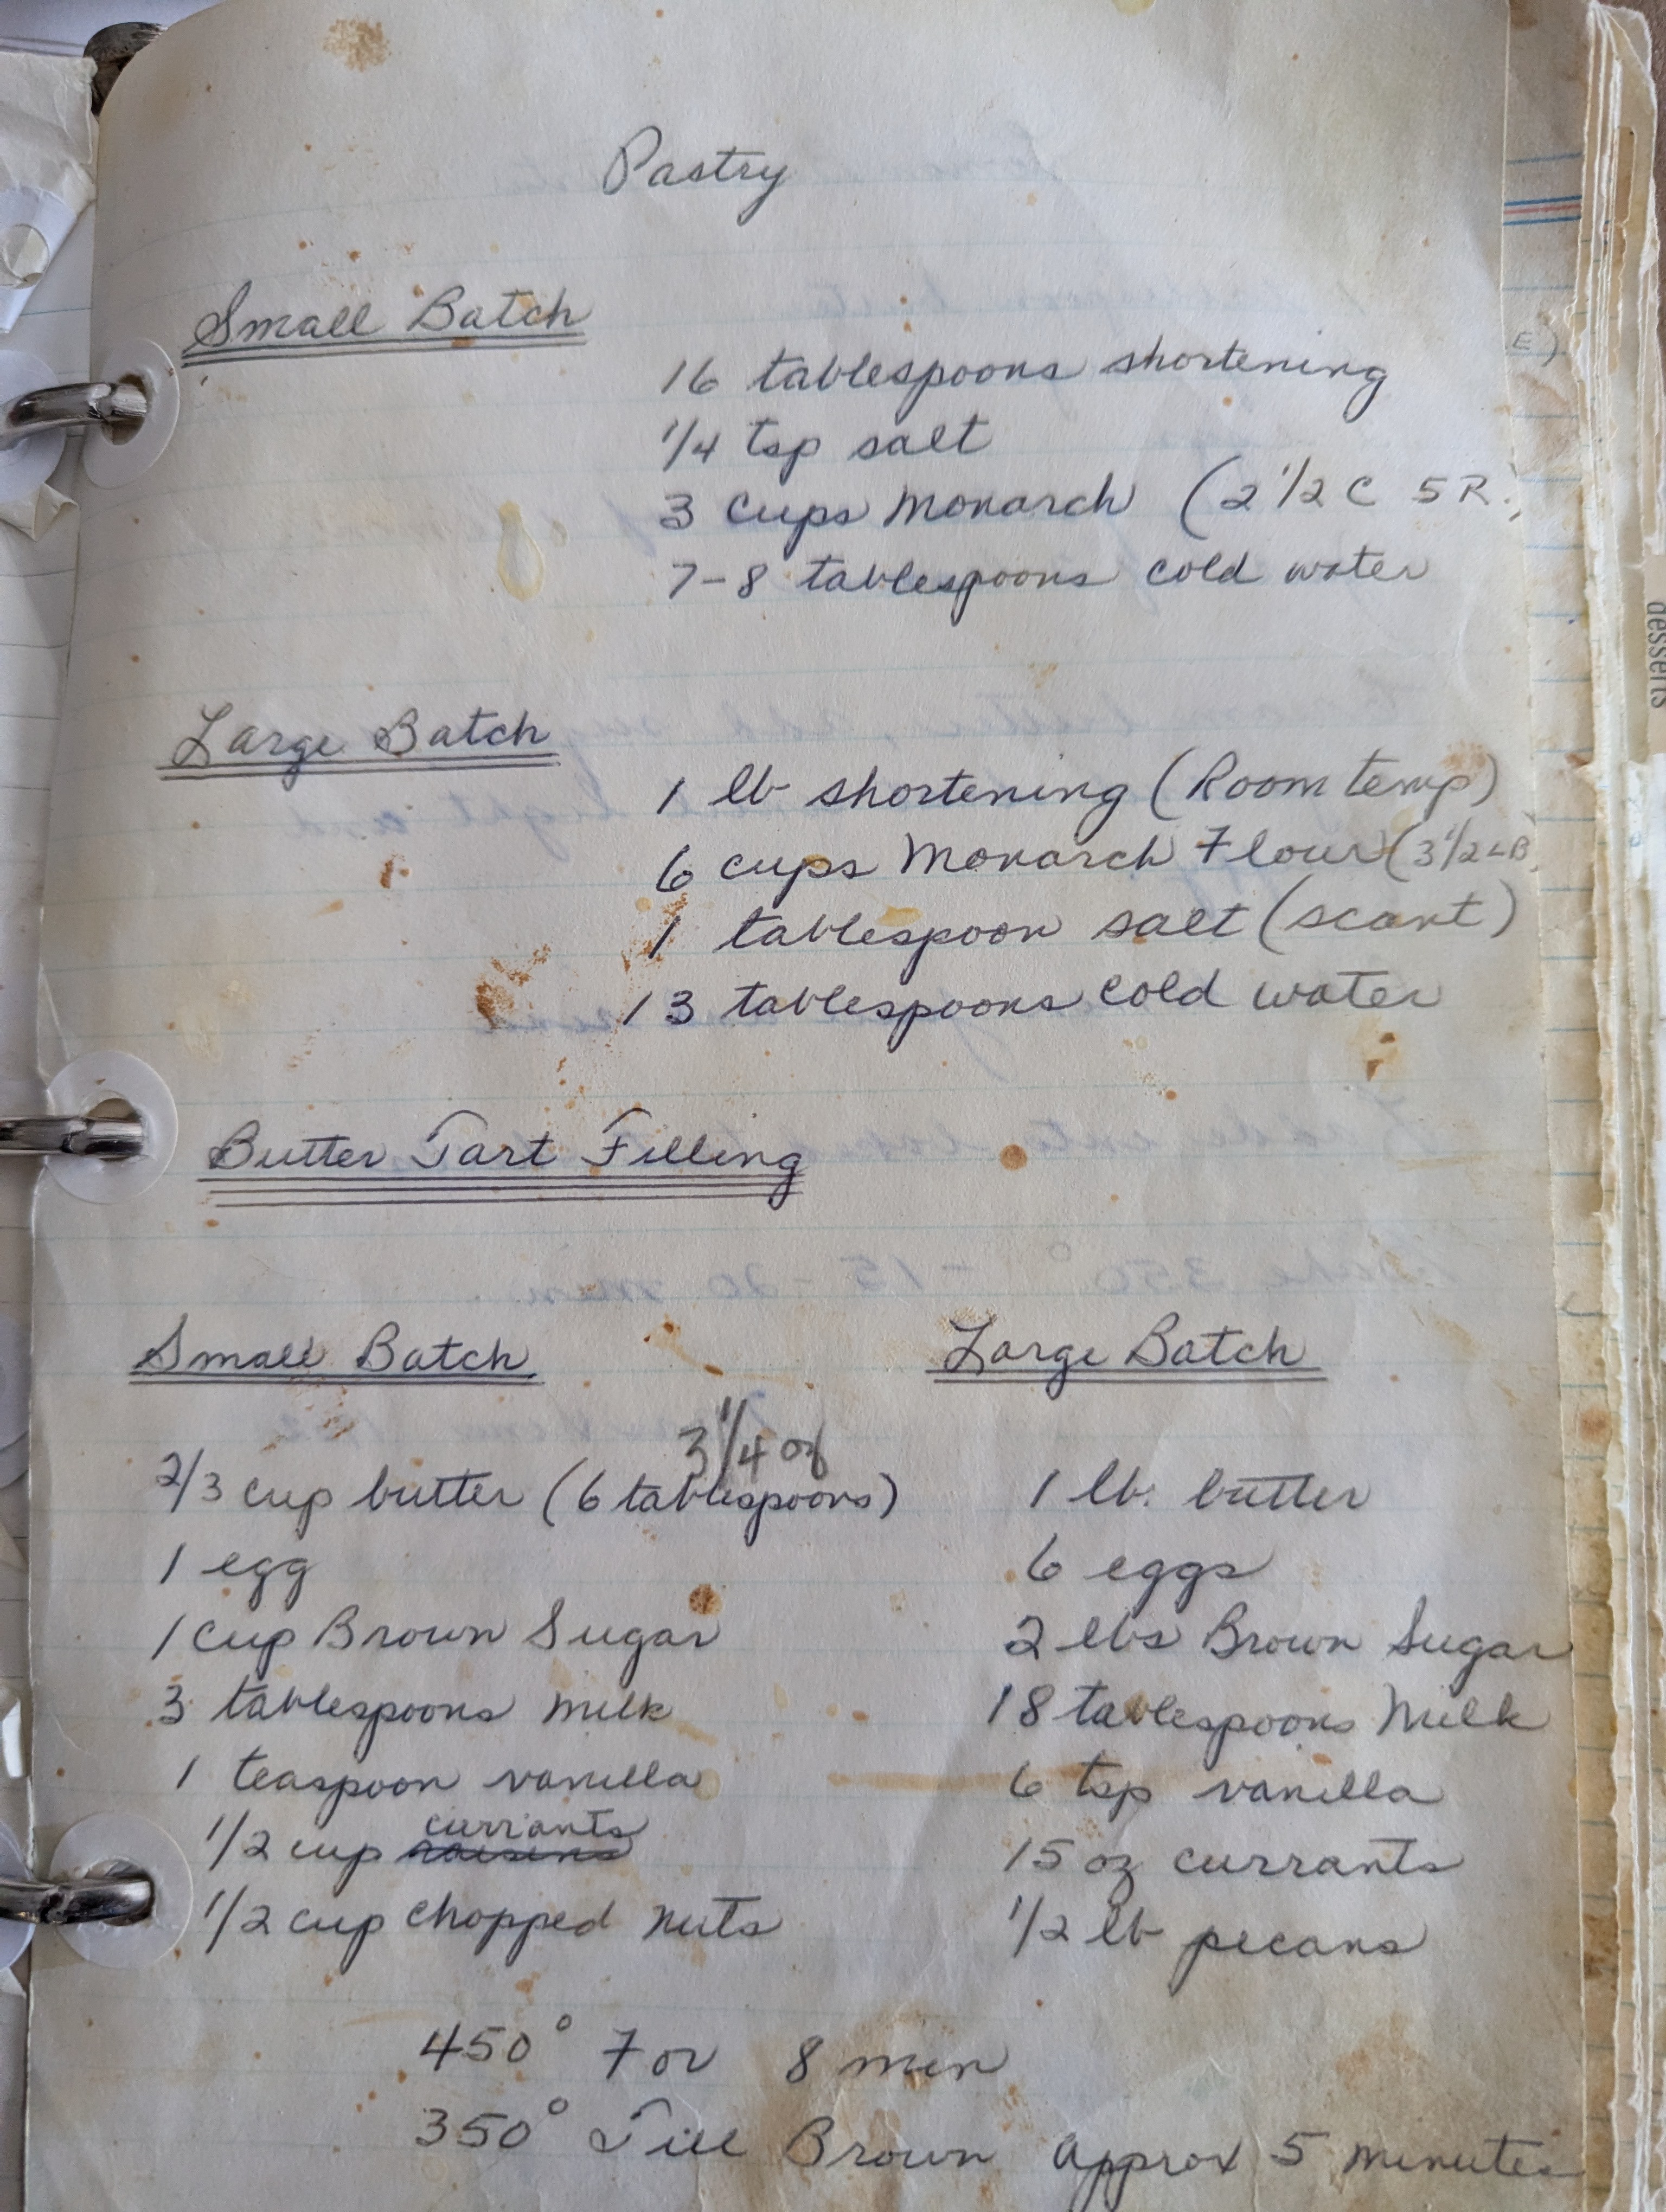 Pastry
Small Batch
16 tablespoons shortening
1/4 tsp salt
3 cups Monarch (2 1/2 C 5 R.)
7-8 tablespoons cold water
Large Batch
1 lb shortening (Room temp)
6 cups Monarch Flour (3 1/2 LB)
1 tablespoon salt (scant)
13 tablespoons cold water
Butter Tart Filling
Small Batch
3 1/4 oz
2/3 cup butter (6 tablespoons)
1 egg
1 cup Brown Sugar
3 tablespoons milk
1 teaspoon vanilla
1/2 cup raisins currants
1/2 cup chopped nuts
Large Batch
1 lb. butter
6 eggs
2 lbs Brown Sugar
18 tablespoons Milk
6 tsp vanilla
15 oz currants
1/2 lb pecans
450° For 8 min
350° Till Brown approx 5 minutes
E)
desserts